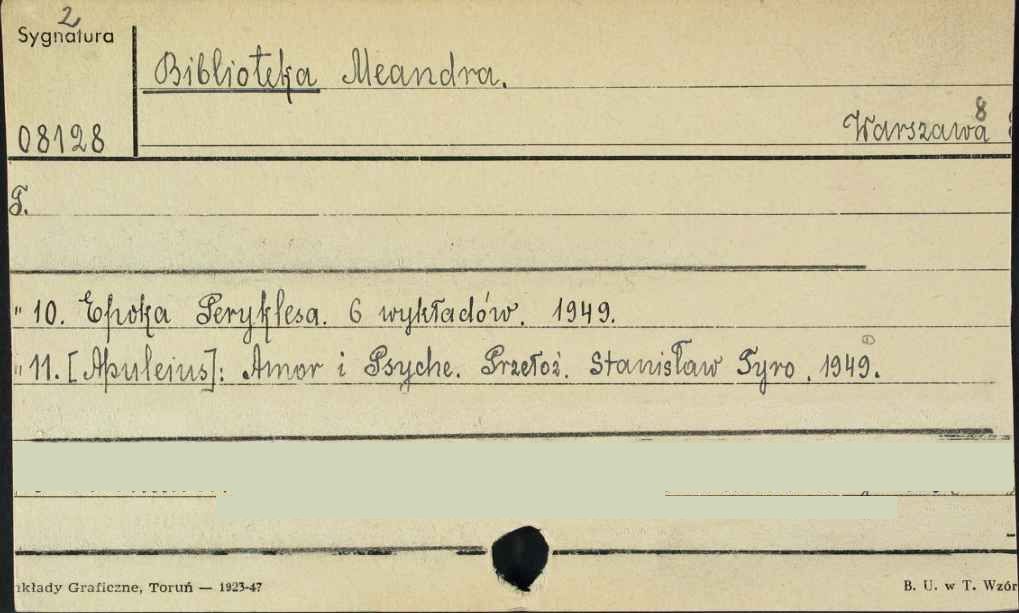 2
Sygnatura
Biblioteka Meandra.
8
08128 Warszawa
T.
" 10. Epoka Peryklesa. 6 wykładów. 1949.
" 11. [Apuleius]: Amor i Psyche. Przełoż. Stanisław Tyro. 1949.
kłady Graficzne, Toruń — 1923-47 B. U. w T. Wzór